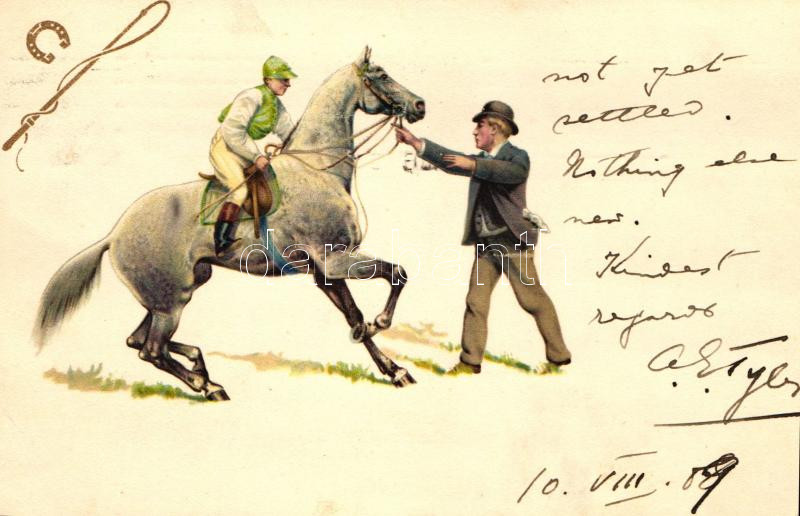 not yet
settled.
Nothing else
new.
Kindest
regards
A.E. Tyler
10. VIII. 09
darabanth